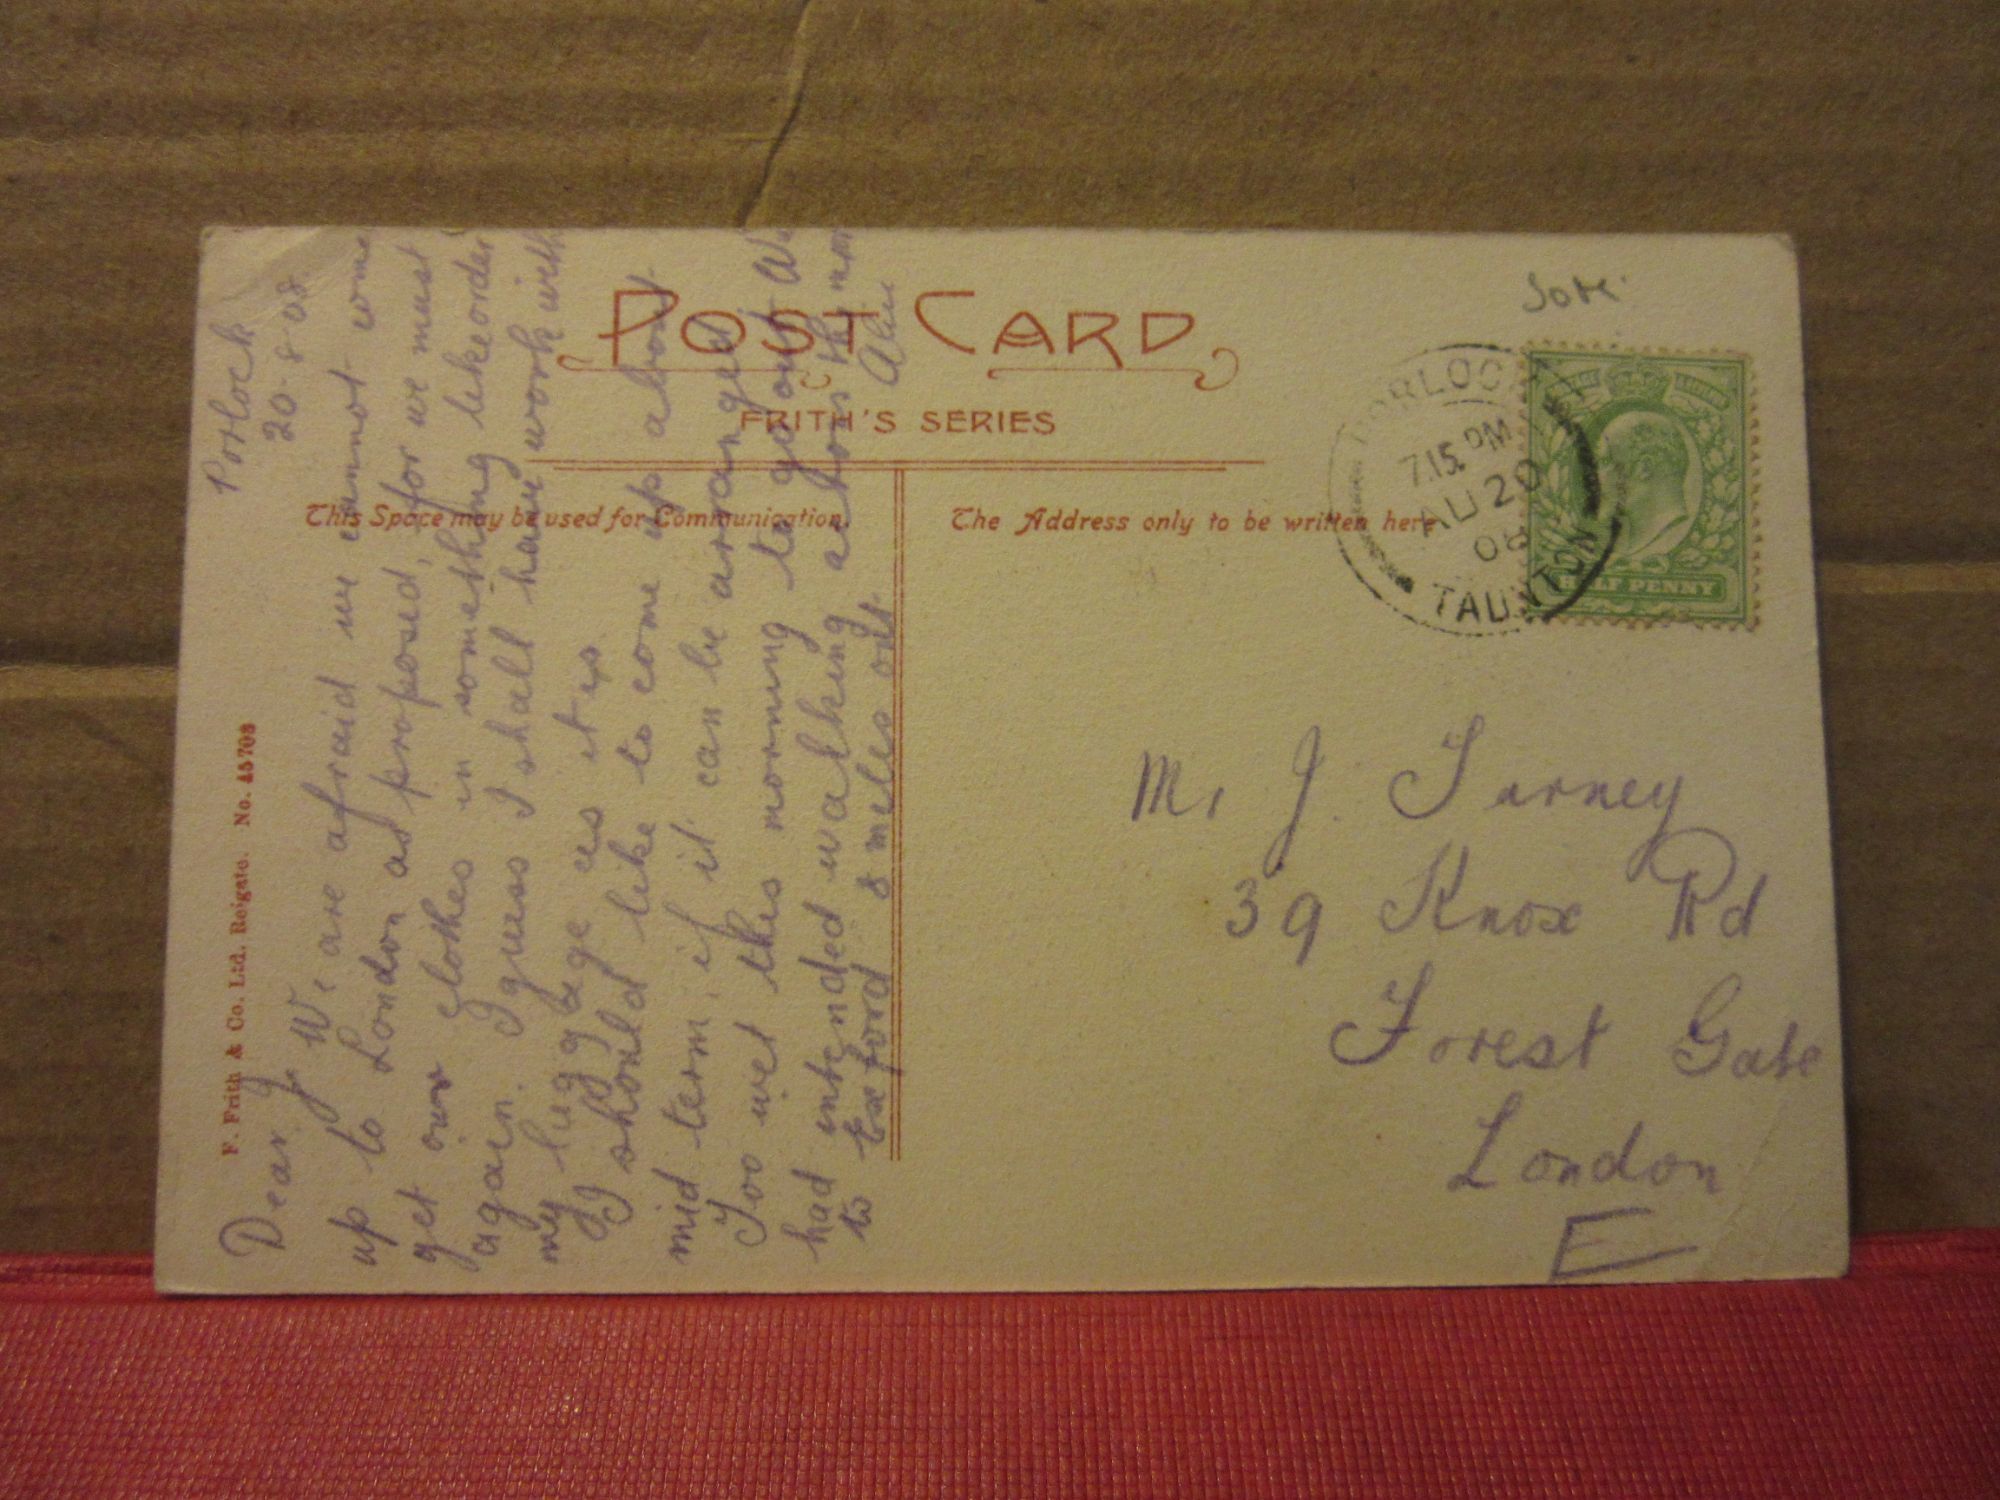 POST CARD
FRITH'S SERIES
This Space may be used for Communication.
The Address only to be written here
F. Frith & Co. Ltd. Reigate. No. 45708
Porlock
20.8.08.
Dear J. We are afraid we cannot come
up to London as proposed, for we must
get our clothes in something like order
again. I guess I shall have work with
my luggage as it is
I should like to come up about
mid term if it can be arranged
Too wet this morning to go out We
had intended walking across the
to Exford 8 miles off.
PORLOCK
7.15 PM
AU 20
08
TAUNTON
HALF PENNY
Mr J. Turney
39 Knox Rd
Forest Gate
London
E